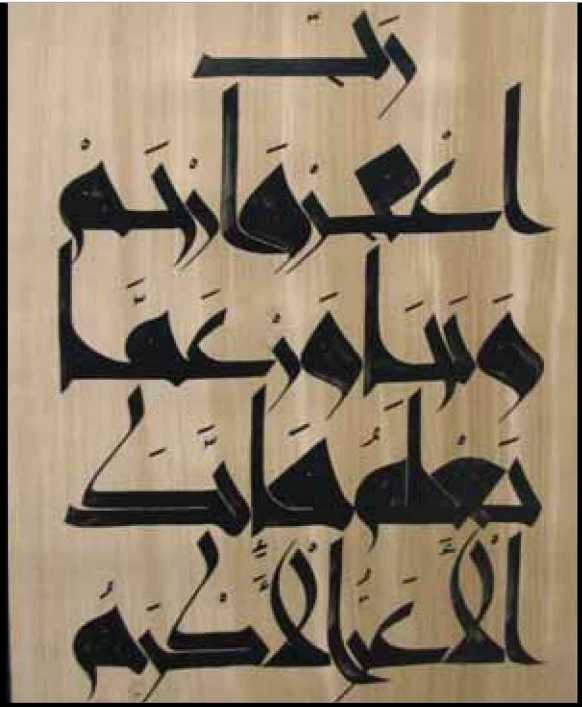 رَبِّ
اغْفِرْ وَارْحَمْ
وَتَجَاوَزْ عَمَّا
تَعْلَمُ فَإِنَّكَ
الْأَعَزُّ الْأَكْرَمُ